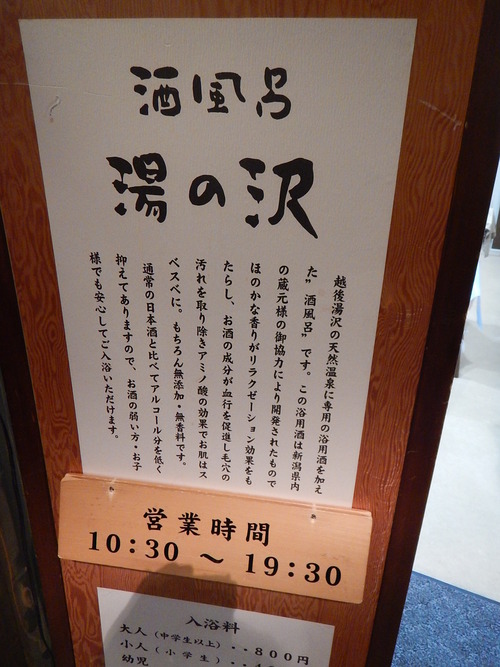 酒風呂
湯の沢
越後湯沢の天然温泉に専用の浴用酒を加え
た”酒風呂”です。この浴用酒は新潟県内
の蔵元様の御協力により開発されたもので
ほのかな香りがリラクゼーション効果をも
たらし、お酒の成分が血行を促進し毛穴の
汚れを取り除きアミノ酸の効果でお肌はス
ベスベに。もちろん無添加・無香料です。
通常の日本酒と比べてアルコール分を低く
抑えてありますので、お酒の弱い方・お子
様でも安心してご入浴いただけます。
営業時間
10:30 〜 19:30
入浴料
大人（中学生以上）‥800円
小人（小学生）‥
幼児